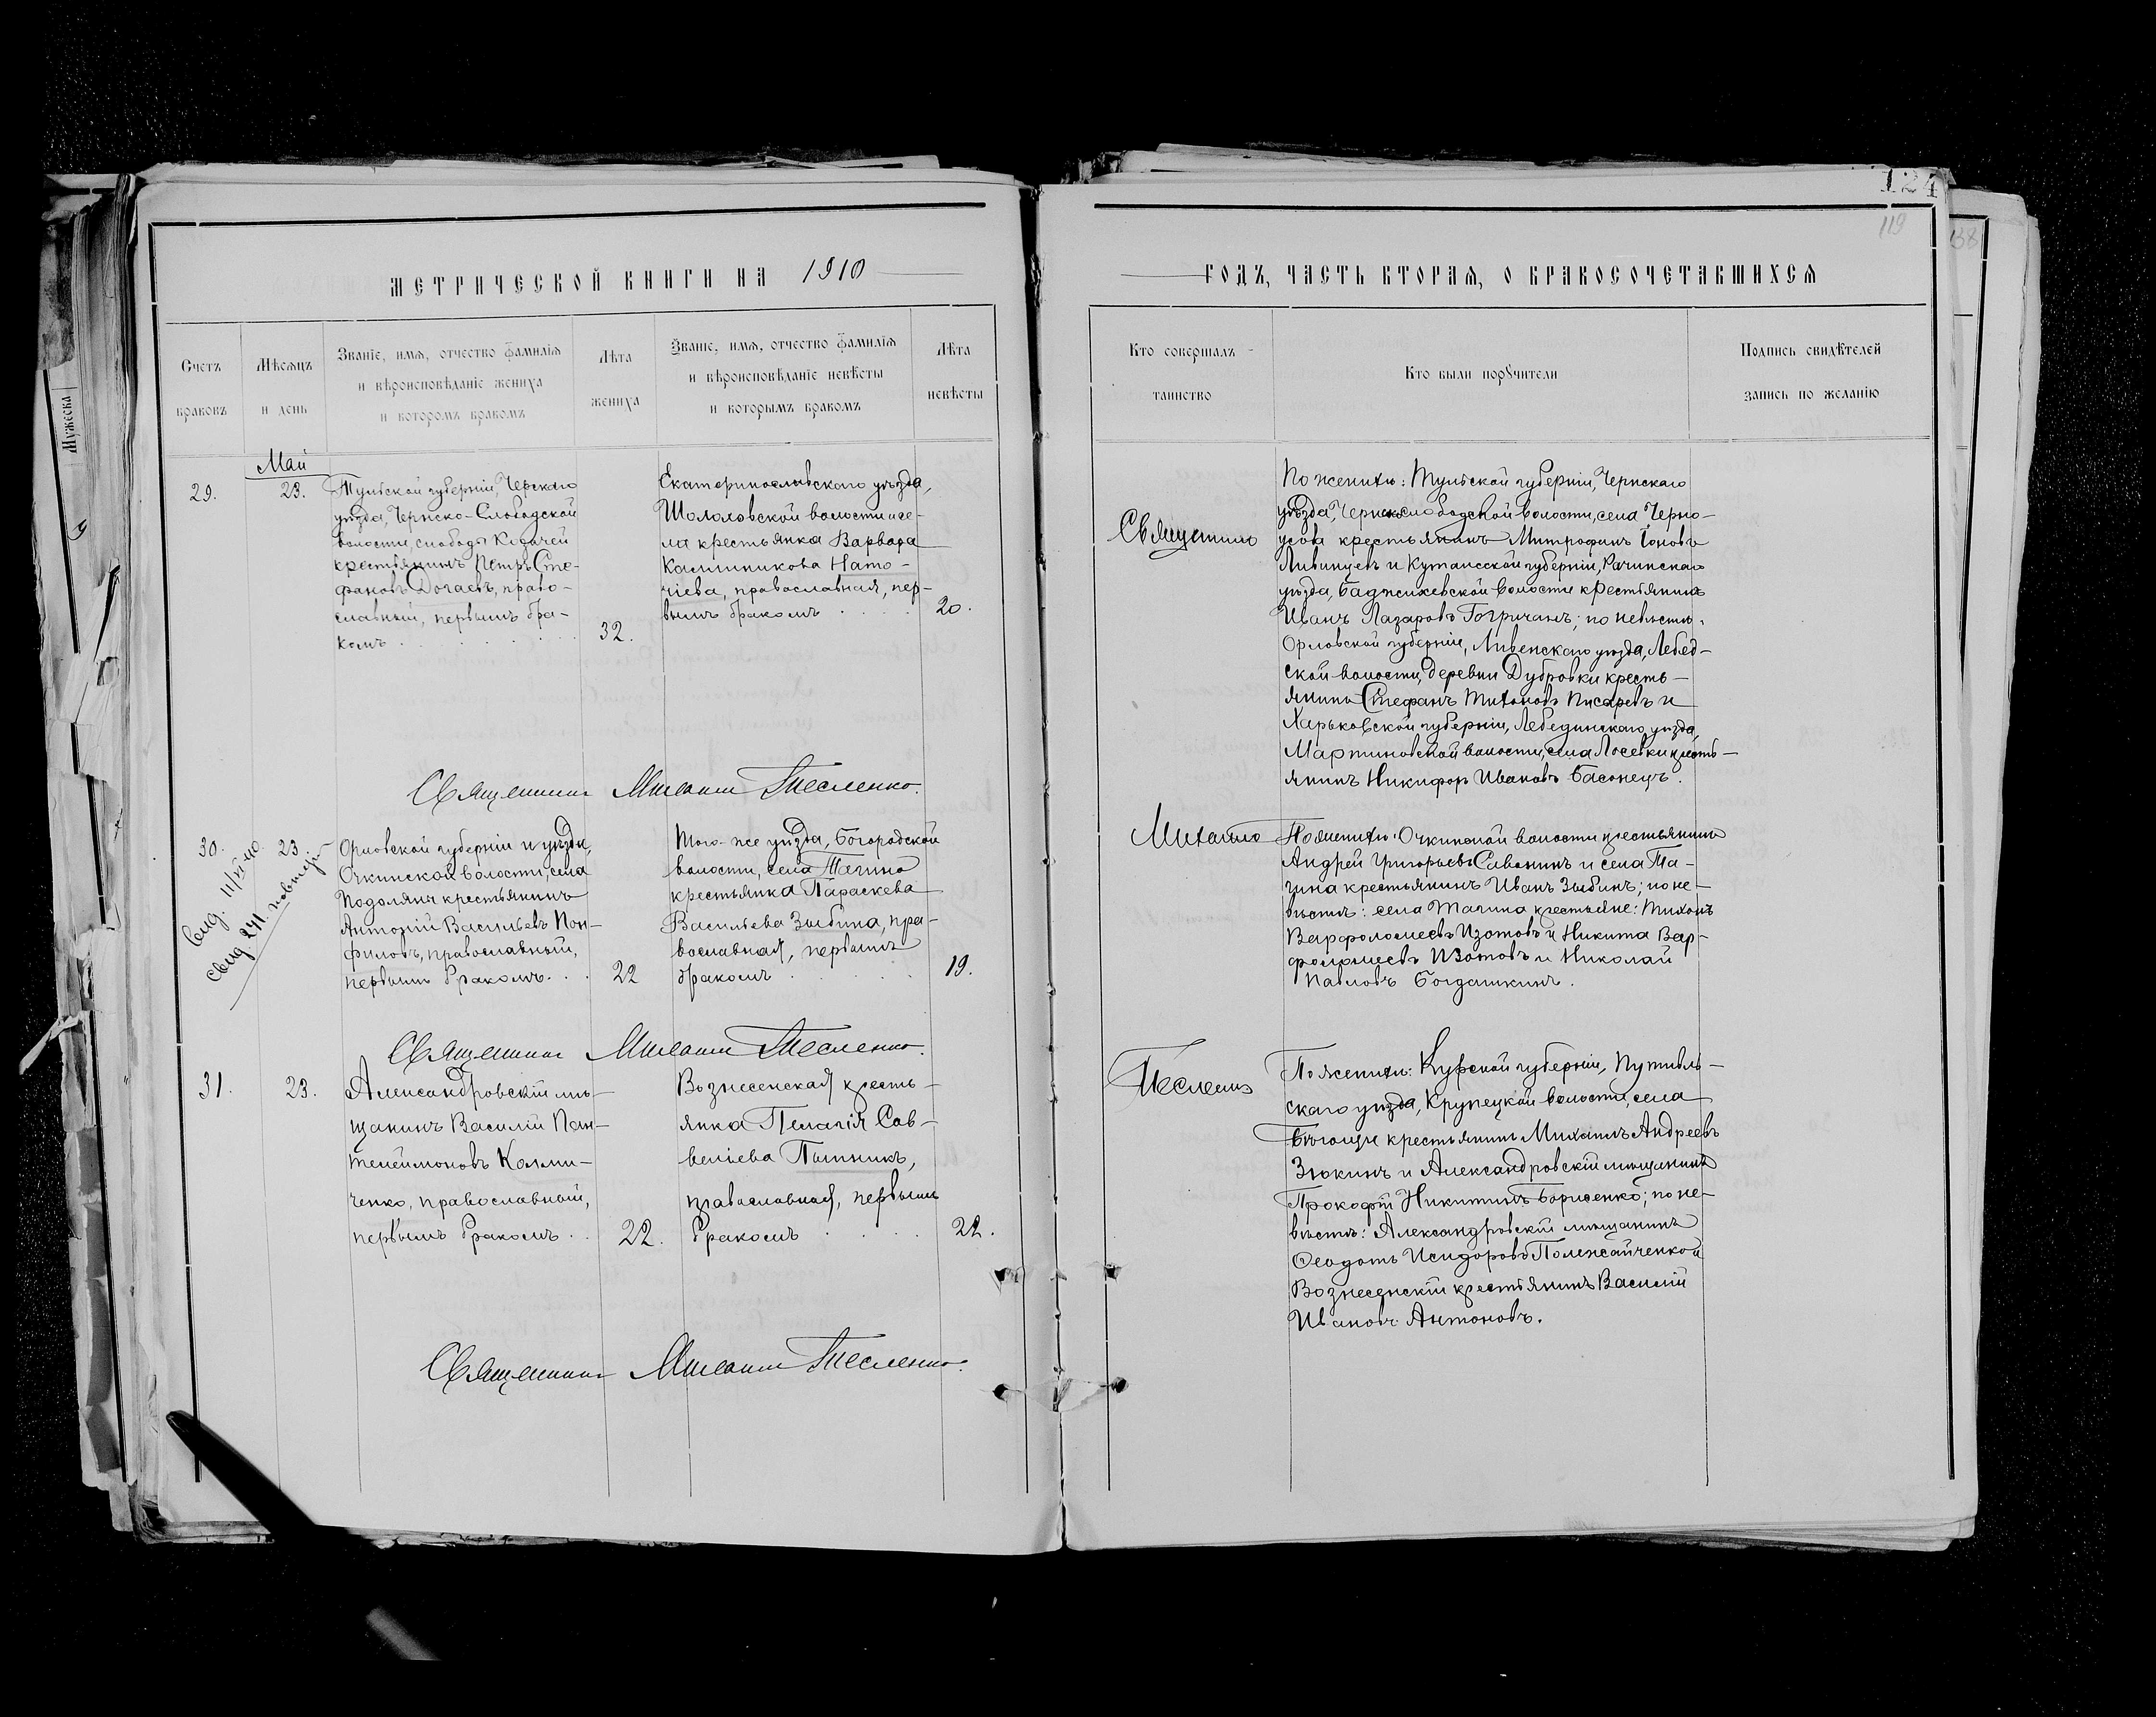 124
119
138
Мужеска
МЕТРИЧЕСКОЙ КНИГИ НА 1910
ГОДЪ, ЧАСТЬ ВТОРАЯ, О БРАКОСОЧЕТАВШИХСЯ
Счетъ
браковъ
Мѣсяцъ
и день
Званіе, имя, отчество фамилія
и вѣроисповѣданіе жениха
и которомъ бракомъ
Лѣта
жениха
Званіе, имя, отчество фамилія
и вѣроисповѣданіе невѣсты
и которымъ бракомъ
Лѣта
невѣсты
Кто совершалъ
таинство
Кто были поручители
Подпись свидѣтелей
запись по желанію
Май
29.
23.
Тульской губерніи, Черскаго
уѣзда, Чернско-Слободской
волости, слободы
крестьянинъ Петръ Сте-
фановъ Догаевъ, право-
славный, первымъ бра-
комъ
32.
Екатеринославскаго уѣзда,
Шолоховской волости и се-
ла крестьянка Варвара
Каллиникова Нато-
чіева, православная, пер-
вымъ бракомъ
20.
Священникъ Михаилъ Тесленко.
Священно
По женихѣ: Тульской губерніи, Чернскаго
уѣзда, Чернскослободской волости, села Черно-
усова крестьянинъ Митрофанъ Іоновъ
Ливинцевъ и Кутаисской губерніи, Рачинскаго
уѣзда, Баджихевской волости крестьянинъ
Иванъ Лазаровъ Гогричанъ; по невѣстѣ:
Орловской губерніи, Ливенскаго уѣзда, Лебед-
ской волости, деревни Дубровки кресть-
янинъ Стефанъ Тихоновъ Писаревъ и
Харьковской губерніи, Лебединскаго уѣзда,
Мартиновской волости, села Лосевки кресть-
янинъ Никифоръ Ивановъ Басонецъ.
30.
23.
11/VI 10.
свид 241.
Орловской губерніи и уѣзда,
Очкинской волости, села
Подолянъ крестьянинъ
Антоній Васильевъ Пон-
филовъ, православный,
первымъ бракомъ.
22
Того-же уѣзда, Богородской
волости, села Тагино
крестьянка Параскева
Васильева Зыбина, пра-
вославная, первымъ
бракомъ
19.
Священникъ Михаилъ Тесленко.
Михаило
По женихѣ: Очкинской волости крестьянинъ
Андрей Григорьевъ Саванинъ и села Та-
гина крестьянинъ Иванъ Зыбинъ; по не-
вѣстѣ: села Тагина крестьяне: Тихонъ
Варфоломеевъ Изотовъ и Никита Вар-
фоломеевъ Изотовъ и Николай
Павловъ Богдашкинъ.
31.
23.
Александровскій мѣ-
щанинъ Василій Пан-
телеймоновъ Калми-
ченко, православный,
первымъ бракомъ
22.
Вознесенская кресть-
янка Пелагія Сав-
веліева Пятникъ,
православная, первымъ
бракомъ
22.
Священникъ Михаилъ Тесленко.
Тесленко
По женихѣ: Курской губерніи, Путивль-
скаго уѣзда, Крупецкой волости, села
крестьянинъ Михаилъ Андреевъ
Зюкинъ и Александровскій мѣщанинъ
Прокофій Никитинъ Борисенко; по не-
вѣстѣ: Александровскій мѣщанинъ
Ѳеодотъ Исидоровъ Полежайченко и
Вознесенскій крестьянинъ Василій
Ивановъ Антоновъ.